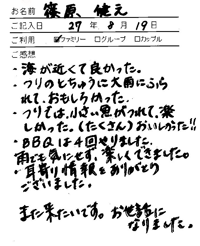 お名前 篠原 健元
ご記入日 27年8月19日
☑ファミリー □グループ □カップル
ご感想
・海が近くて良かった。
・つりのとちゅうに大雨にふら
れて、おもしろかった。
・つりでは、小さい魚がつれて、楽
しかった。(たくさん)おいしかった!!
・BBQは4回やりました。
雨でも気にせず、楽しくできました。
・耳寄り情報をありがとう
ございました。
また来たいです。お世話に
なりました。